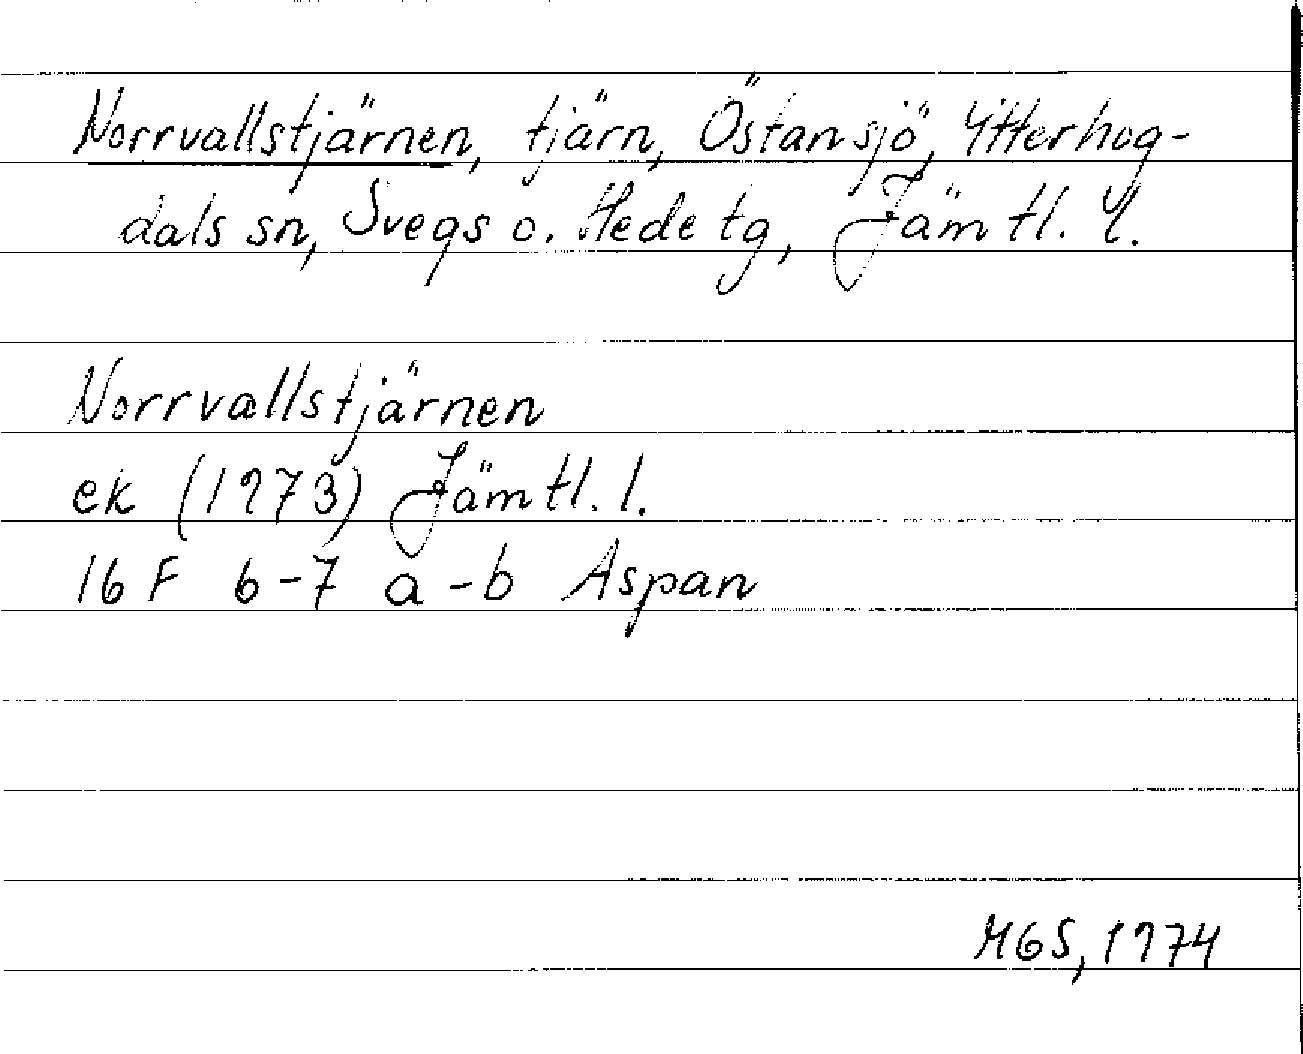 Norrvallstjärnen, tjärn, Östansjö, Ytterhog-
dals sn, Svegs o. Hede tg, Jämtl. l.
Norrvallstjärnen
ek (1973) Jämtl. l.
16 F 6-7 a-b Aspan
MGS, 1974